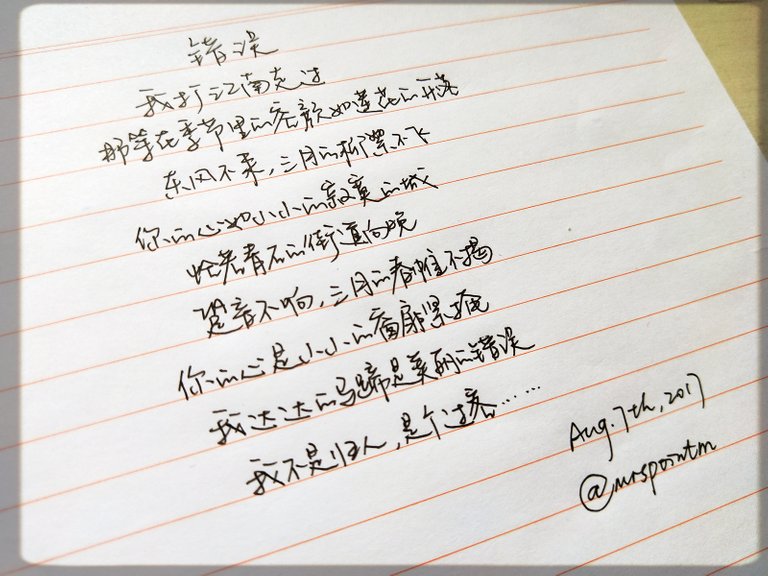 错误
我打江南走过
那等在季节里的容颜如莲花的开落
东风不来，三月的柳絮不飞
你的心如小小的寂寞的城
恰若青石的街道向晚
跫音不响，三月的春帷不揭
你的心是小小的窗扉紧掩
我达达的马蹄是美丽的错误
我不是归人，是个过客……
Aug. 7th, 2017
@mrspointm